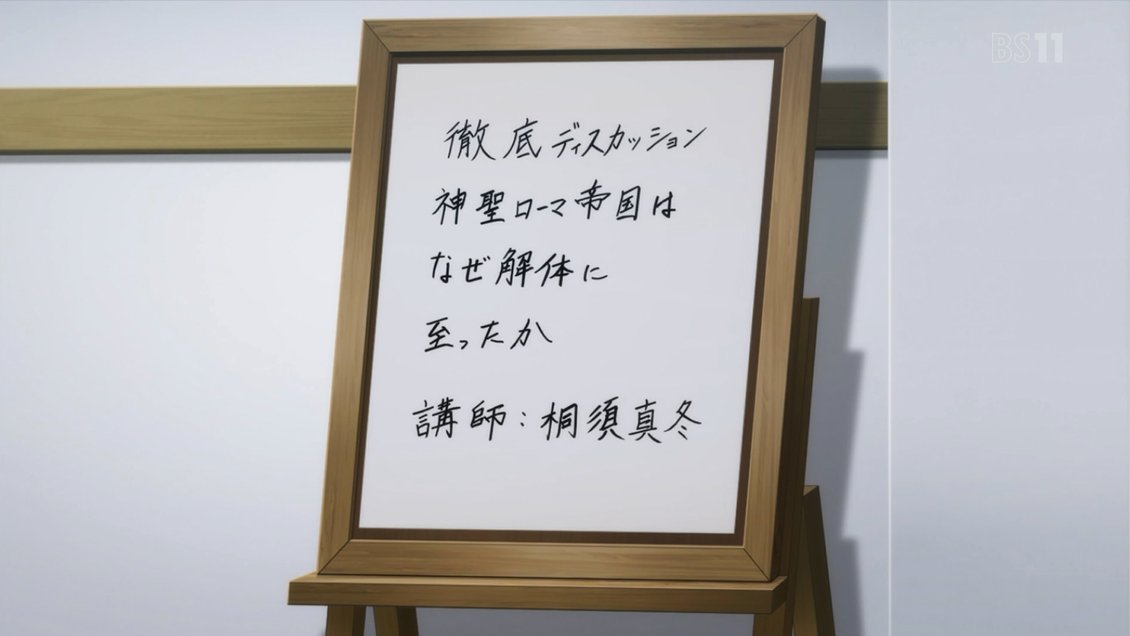 徹底ディスカッション
神聖ローマ帝国は
なぜ解体に
至ったか
講師：桐須真冬
BS11